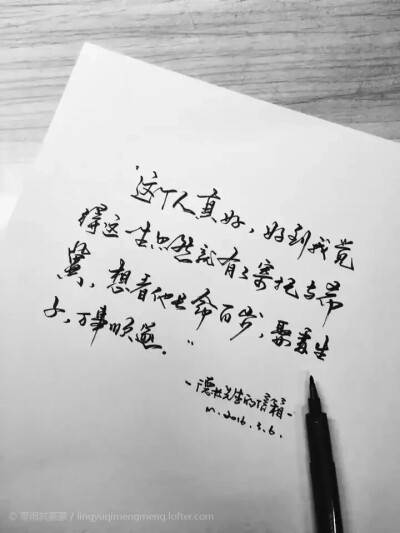 “这个人真好，好到我觉
得这一生忽然就有了寄托与希
冀，想看他长命百岁，娶妻生
子，万事顺遂。”
-德卡先生的信箱-
2016.3.6.
© 零雨其蒙蒙 / lingyuqimengmeng.lofter.com